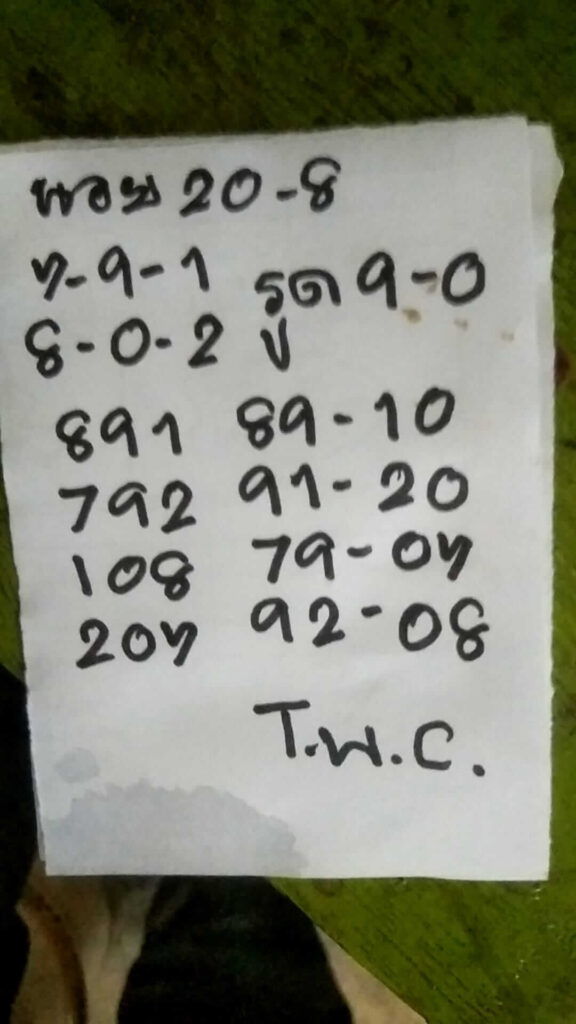 หวย 20-8
7-9-1 รูด 9-0
8-0-2
891 89-10
792 91-20
108 79-07
207 92-08
T.W.C.